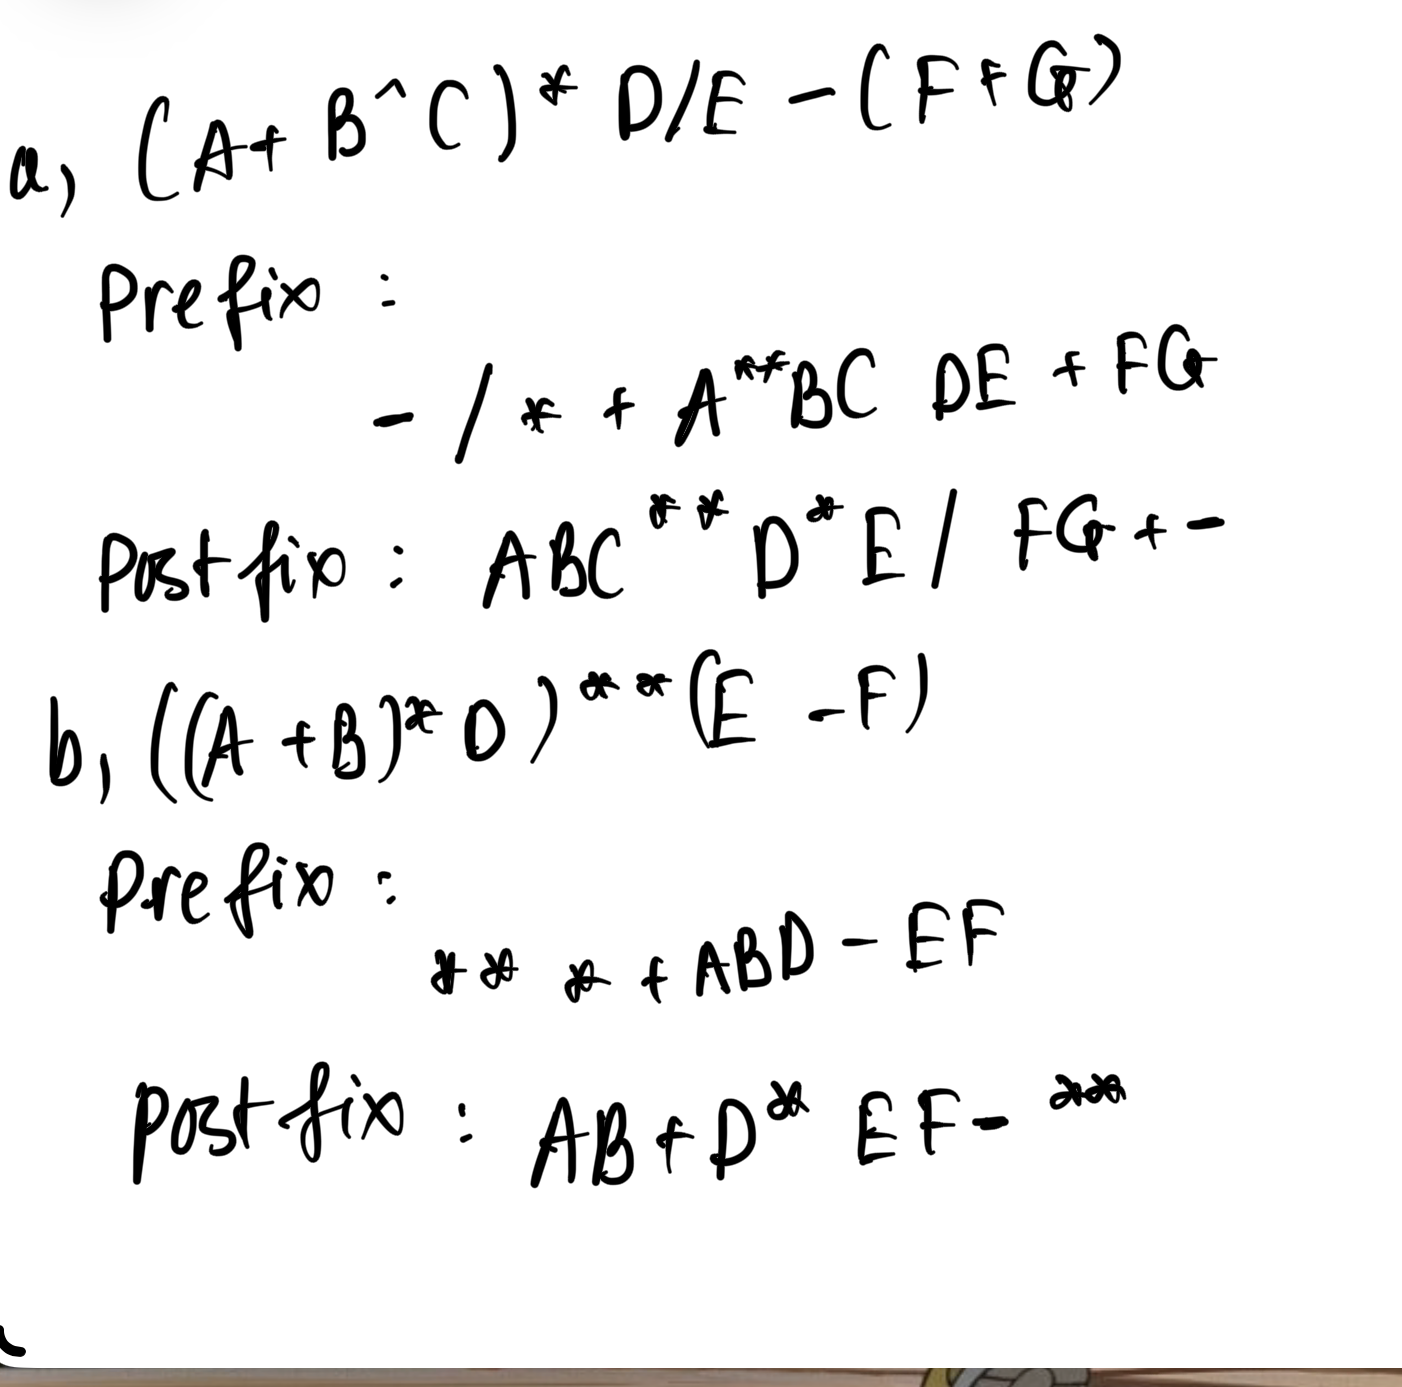 a, (A+ B^C)* D/E - (F+G)
Prefix :
- / * + A**BC DE + FG
Postfix : ABC** D*E/ FG+-
b, ((A+B)*D)**(E-F)
Prefix :
** * + ABD - EF
postfix : AB+D* EF- **